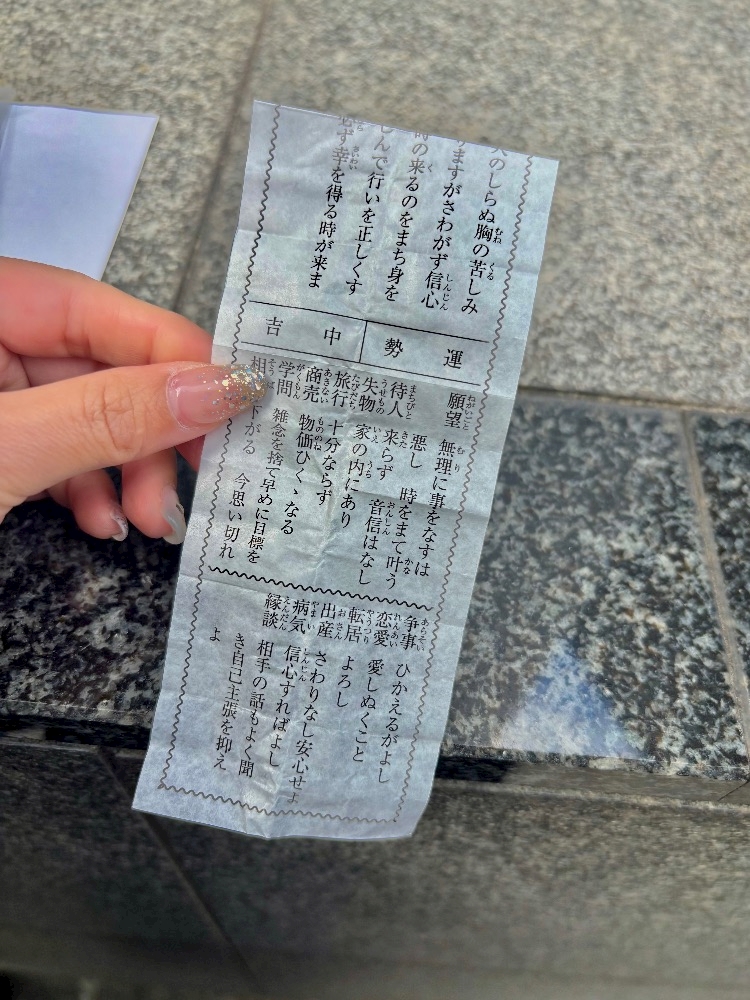 のしらぬ胸の苦しみ
りますがさわがず信心
の来るのをまち身を
しんで行いを正しくす
必ず幸を得る時が来ま
運勢 中吉
願望 無理に事をなすは
悪し 時をまて叶う
待人 来らず 音信はなし
失物 家の内にあり
旅行 十分ならず
商売 物価ひくゝなる
学問 雑念を捨て早めに目標を
相 下がる 今思い切れ
争事 ひかえるがよし
恋愛 愛しぬくこと
転居 よろし
出産 さわりなし安心せよ
病気 信心すればよし
縁談 相手の話もよく聞
き自己主張を抑え
よ